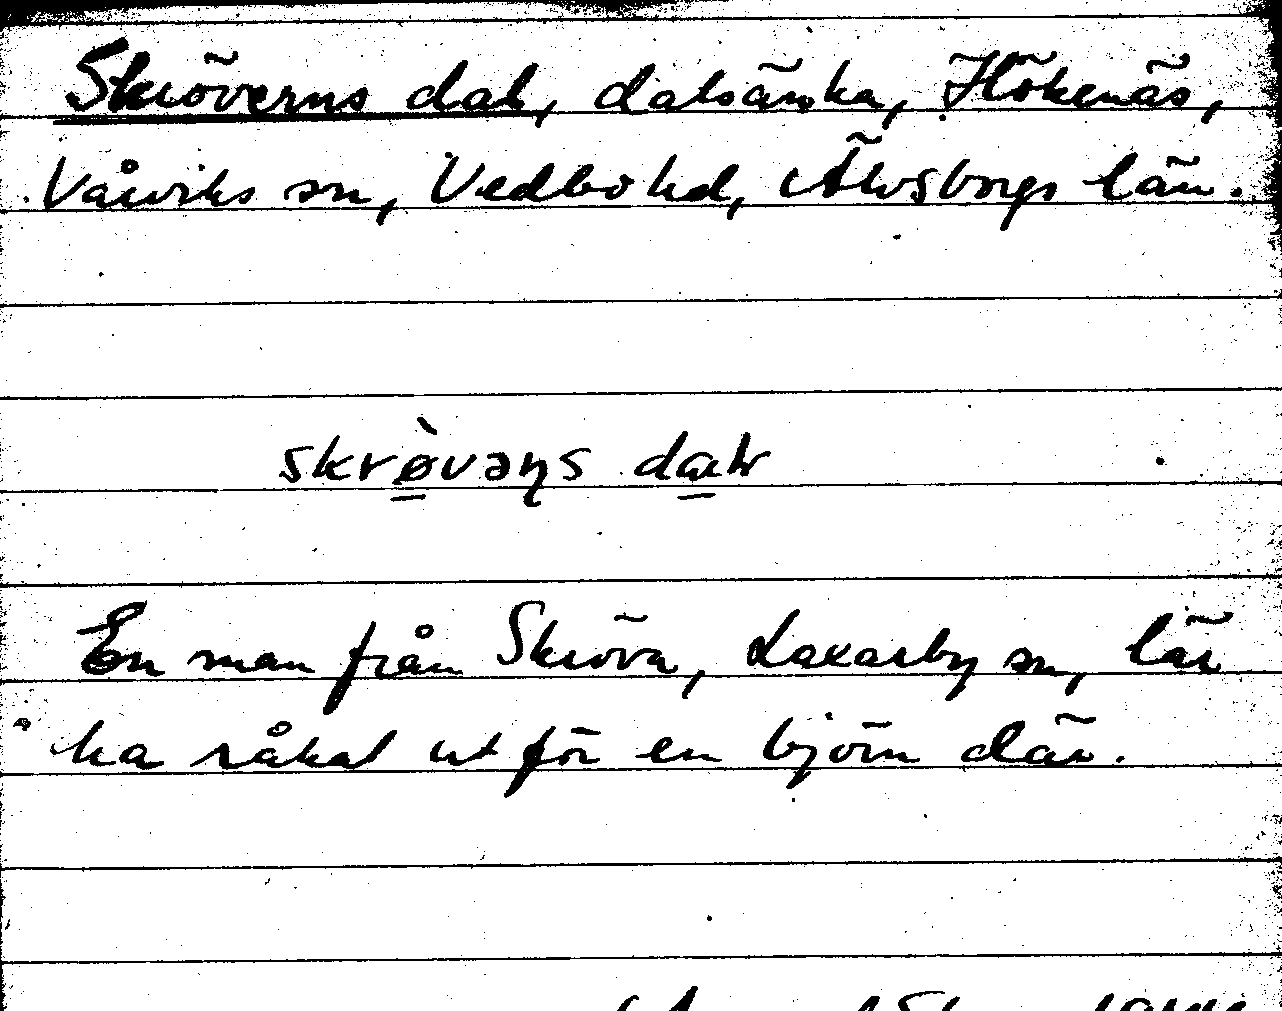 Skröverns dal, dalsänka, Hökenäs,
Vårviks sn, Vedbo hd, Älvsborgs län.
skrø̀vəɳs daɫr
En man från Skröva, Laxarby sn, lär
ha råkat ut för en björn där.